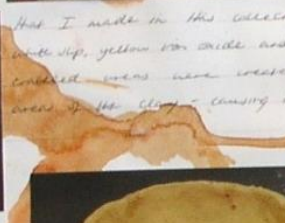 that I made in this collec
white slip, yellow iron oxide and
areas were
areas of the clay - causing